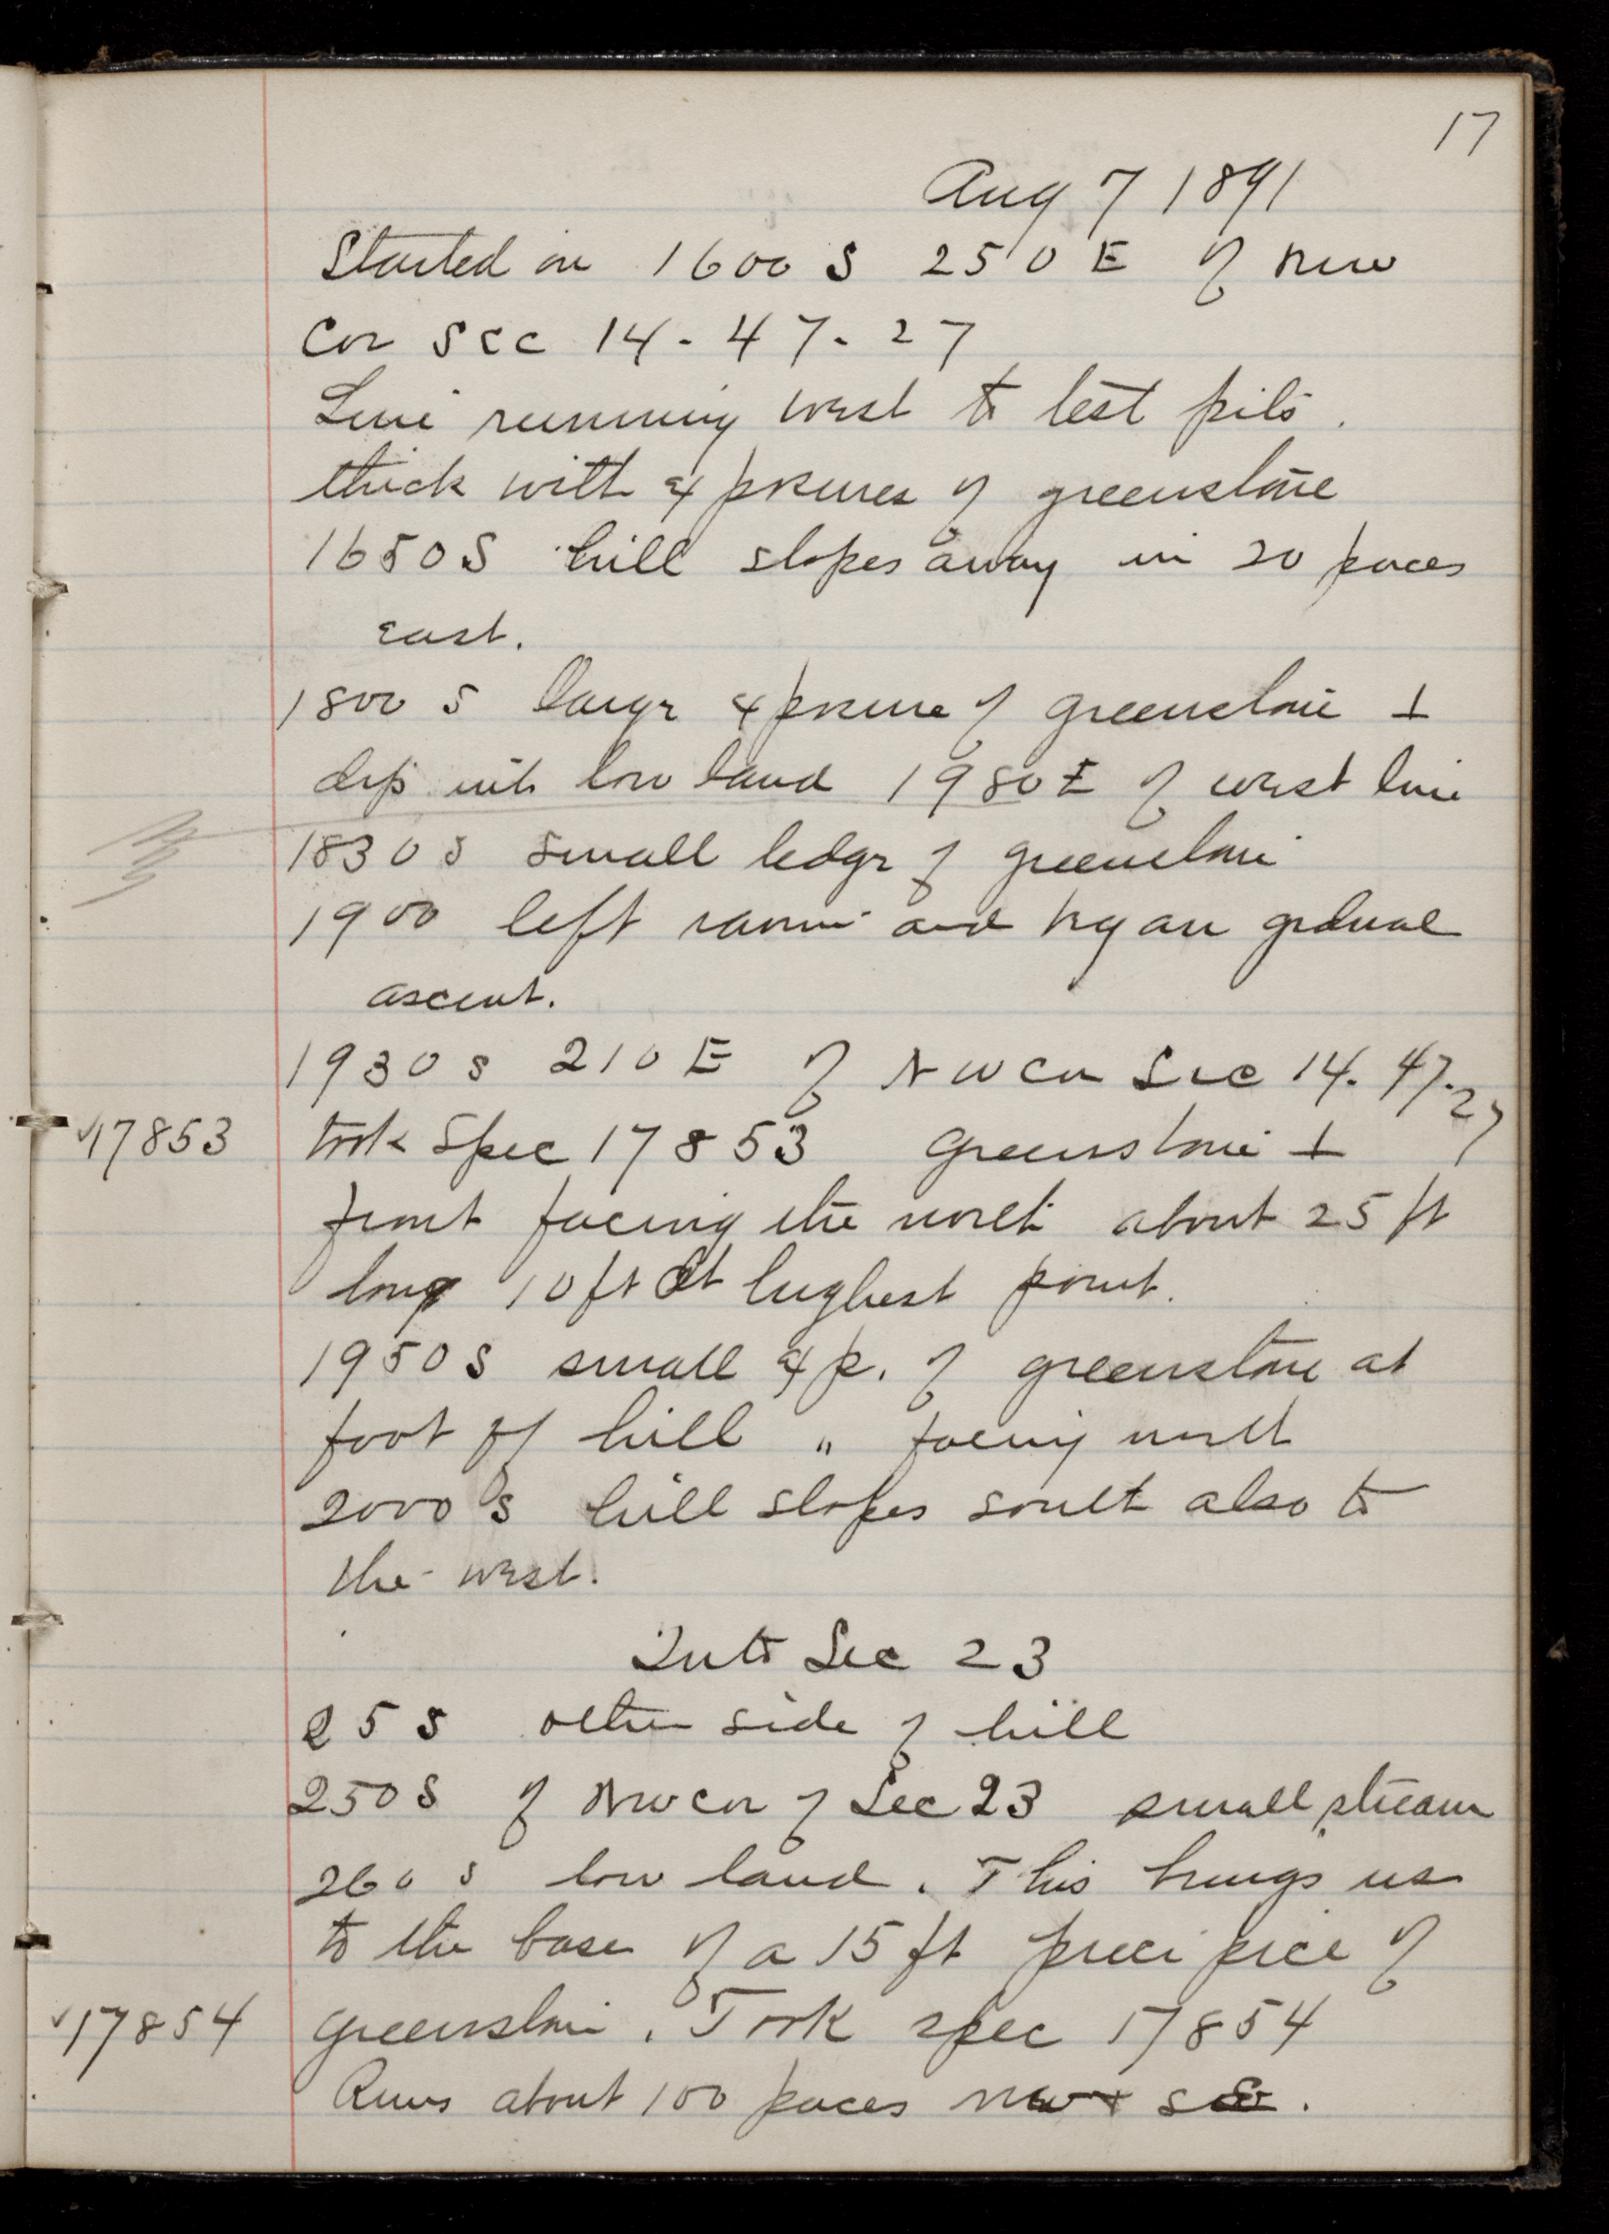 17
Aug 7 1891
Started on 1600 S 250 E of NW
Cor Sec 14-47-27
Line running west to test pits.
thick with exposures of greenstone
1650 S hill slopes away in 20 paces
east.
1800 S large exposure of greenstone ⊥
dip into low land 1980 E of west line
1830 S small ledge of greenstone
1900 left ravine and began gradual
ascent.
1930 S 210 E of NW Cor Sec 14-47-27
17853 took Spec 17853 greenstone ⊥
front facing the north about 25 ft
long 10 ft at highest point.
1950 S small exp. of greenstone at
foot of hill " facing north
2000 S hill slopes south also to
the west.
Into Sec 23
25 S other side of hill
250 S of NW cor of Sec 23 small stream
260 S low land. This brings us
to the base of a 15 ft precipice of
17854 greenstone. Took spec 17854
Runs about 100 paces NW + SE.